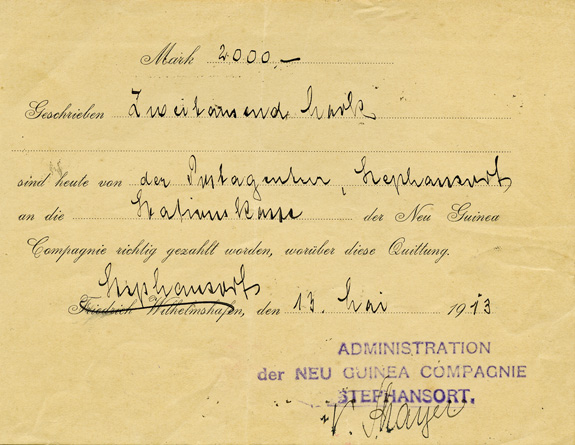 Mark 2000,—
Geschrieben Zweitausend Mark
sind heute von der Postagentur, Stephansort
an die Stationskasse der Neu Guinea
Compagnie richtig gezahlt worden, worüber diese Quittung.
Stephansort
Friedrich Wilhelmshafen, den 13. Mai 1913
ADMINISTRATION
der NEU GUINEA COMPAGNIE
STEPHANSORT.